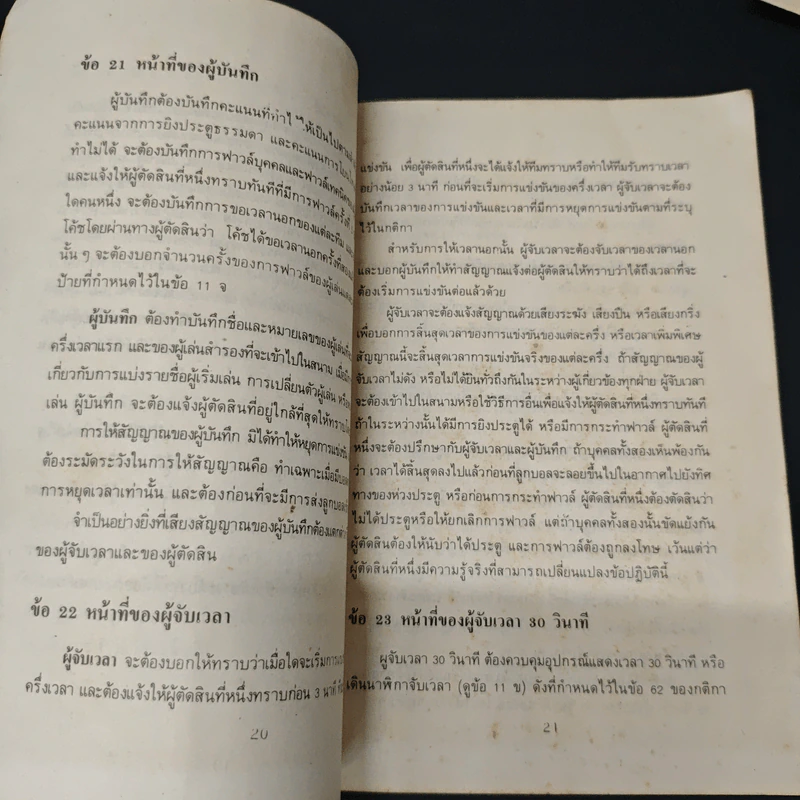 ข้อ 21 หน้าที่ของผู้บันทึก
ผู้บันทึกต้องบันทึกคะแนนที่ทำได้ ให้เป็นไปตาม
คะแนนจากการยิงประตูธรรมดา และคะแนนการโยน
ทำไม่ได้ จะต้องบันทึกการฟาวล์บุคคลและฟาวล์เทคนิค
และแจ้งให้ผู้ตัดสินที่หนึ่งทราบทันทีที่มีการฟาวล์ครั้งที่
ใดคนหนึ่ง จะต้องบันทึกการขอเวลานอกของแต่ละทีม
โค้ชโดยผ่านทางผู้ตัดสินว่า โค้ชได้ขอเวลานอกครั้งที่สอง
นั้น ๆ จะต้องบอกจำนวนครั้งของการฟาวล์ของผู้เล่น
ป้ายที่กำหนดไว้ในข้อ 11 จ
ผู้บันทึก ต้องทำบันทึกชื่อและหมายเลขของผู้เล่น
ครึ่งเวลาแรก และของผู้เล่นสำรองที่จะเข้าไปในสนาม
เกี่ยวกับการแบ่งรายชื่อผู้เริ่มเล่น การเปลี่ยนตัวผู้เล่น หรือ
เล่น ผู้บันทึก จะต้องแจ้งผู้ตัดสินที่อยู่ใกล้ที่สุดให้ทราบ
การให้สัญญาณของผู้บันทึก มิได้ทำให้หยุดการแข่งขัน
ต้องระมัดระวังในการให้สัญญาณคือ ทำเฉพาะเมื่อมี
การหยุดเวลาเท่านั้น และต้องก่อนที่จะมีการส่งลูกบอล
จำเป็นอย่างยิ่งที่เสียงสัญญาณของผู้บันทึกต้อง
ของผู้จับเวลาและของผู้ตัดสิน
ข้อ 22 หน้าที่ของผู้จับเวลา
ผู้จับเวลา จะต้องบอกให้ทราบว่าเมื่อใดจะเริ่มการ
ครึ่งเวลา และต้องแจ้งให้ผู้ตัดสินที่หนึ่งทราบก่อน 3 นาที
20
แข่งขัน เพื่อผู้ตัดสินที่หนึ่งจะได้แจ้งให้ทีมทราบหรือทำให้ทีมรับทราบเวลา
อย่างน้อย 3 นาที ก่อนที่จะเริ่มการแข่งขันของครึ่งเวลา ผู้จับเวลาจะต้อง
บันทึกเวลาของการแข่งขันและเวลาที่มีการหยุดการแข่งขันตามที่ระบุ
ไว้ในกติกา
สำหรับการให้เวลานอกนั้น ผู้จับเวลาจะต้องจับเวลาของเวลานอก
และบอกผู้บันทึกให้ทำสัญญาณแจ้งต่อผู้ตัดสินให้ทราบว่าได้ถึงเวลาที่จะ
ต้องเริ่มการแข่งขันต่อแล้วด้วย
ผู้จับเวลาจะต้องแจ้งสัญญาณด้วยเสียงระฆัง เสียงปืน หรือเสียงกริ่ง
เพื่อบอกการสิ้นสุดเวลาของการแข่งขันของแต่ละครึ่ง หรือเวลาเพิ่มพิเศษ
สัญญาณนี้จะสิ้นสุดเวลาการแข่งขันจริงของแต่ละครึ่ง ถ้าสัญญาณของผู้
จับเวลาไม่ดัง หรือไม่ได้ยินทั่วถึงกันในระหว่างผู้เกี่ยวข้องทุกฝ่าย ผู้จับเวลา
จะต้องเข้าไปในสนามหรือใช้วิธีการอื่นเพื่อแจ้งให้ผู้ตัดสินที่หนึ่งทราบทันที
ถ้าในระหว่างนั้นได้มีการยิงประตูได้ หรือมีการกระทำฟาวล์ ผู้ตัดสินที่
หนึ่งจะต้องปรึกษากับผู้จับเวลาและผู้บันทึก ถ้าบุคคลทั้งสองเห็นพ้องกัน
ว่า เวลาได้สิ้นสุดลงไปแล้วก่อนที่ลูกบอลจะลอยขึ้นไปในอากาศไปยังทิศ
ทางของห่วงประตู หรือก่อนการกระทำฟาวล์ ผู้ตัดสินที่หนึ่งต้องตัดสินว่า
ไม่ได้ประตูหรือให้ยกเลิกการฟาวล์ แต่ถ้าบุคคลทั้งสองนั้นขัดแย้งกัน
ผู้ตัดสินต้องให้นับว่าได้ประตู และการฟาวล์ต้องถูกลงโทษ เว้นแต่ว่า
ผู้ตัดสินที่หนึ่งมีความรู้จริงที่สามารถเปลี่ยนแปลงข้อปฏิบัตินี้
ข้อ 23 หน้าที่ของผู้จับเวลา 30 วินาที
ผู้จับเวลา 30 วินาที ต้องควบคุมอุปกรณ์แสดงเวลา 30 วินาที หรือ
เดินนาฬิกาจับเวลา (ดูข้อ 11 ข) ดังที่กำหนดไว้ในข้อ 62 ของกติกา
21